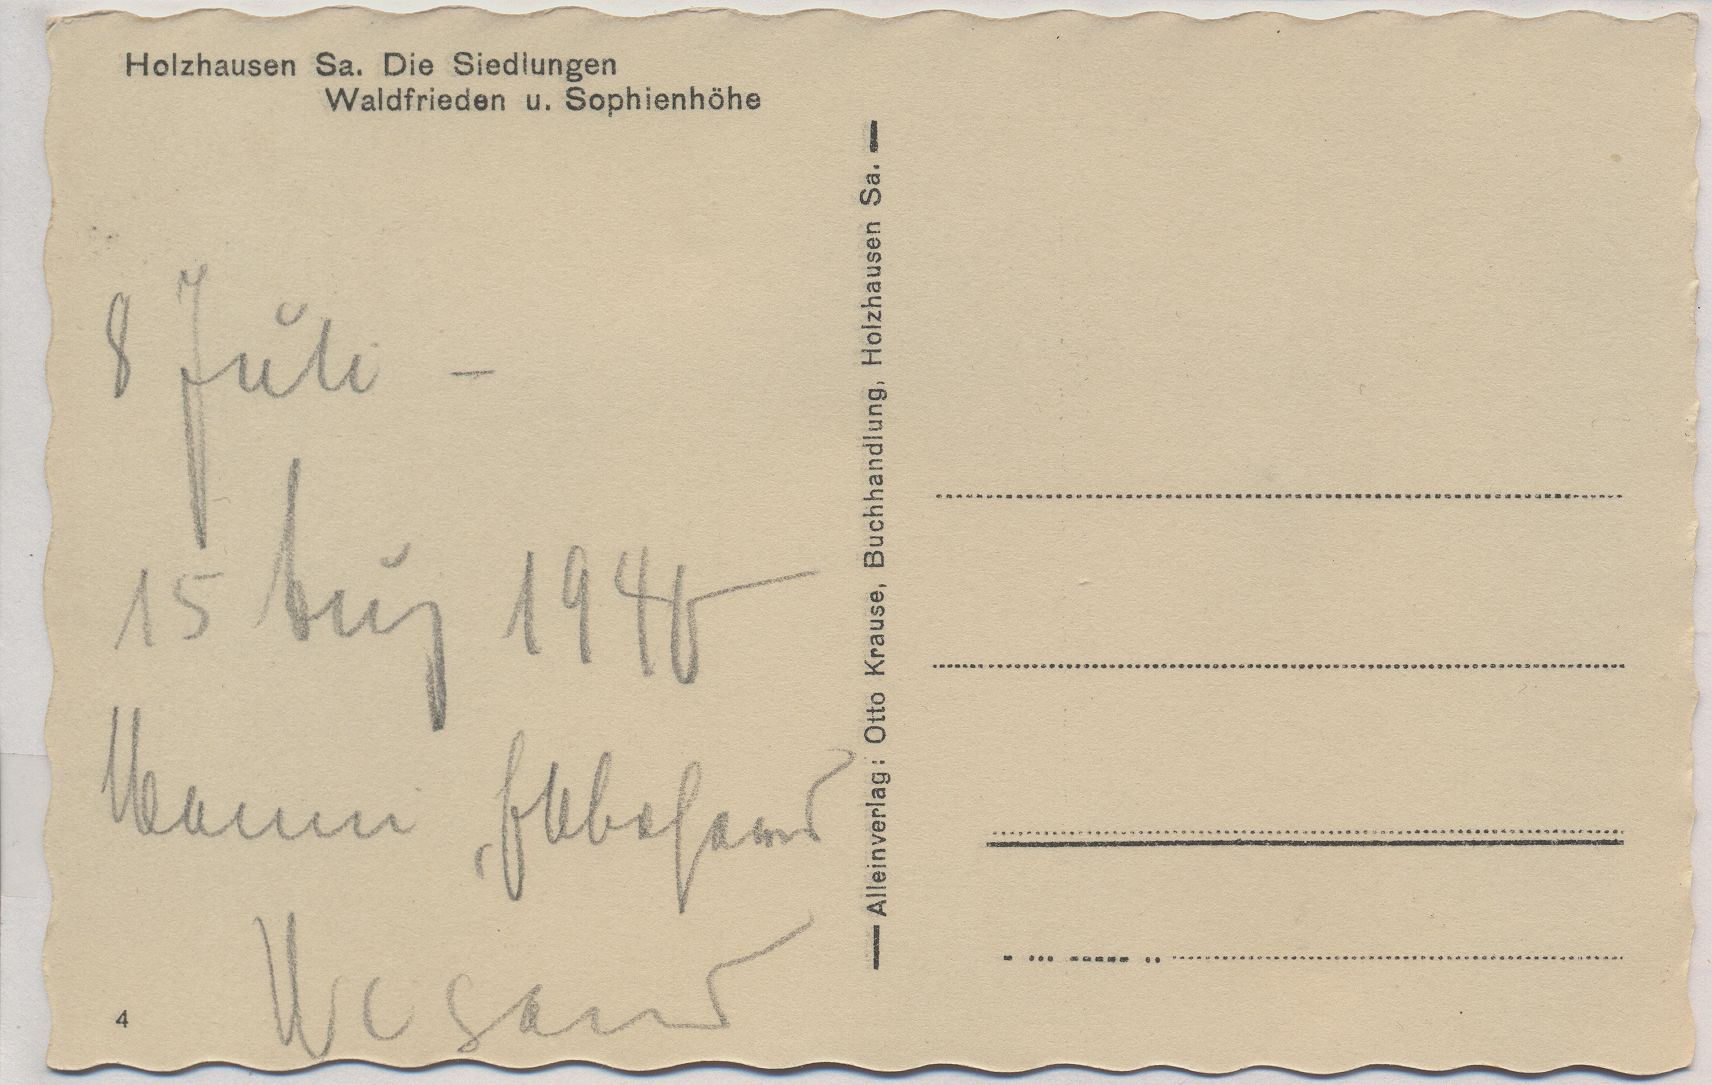 Holzhausen Sa. Die Siedlungen
Waldfrieden u. Sophienhöhe
8 Juli -
15 Aug 1940
Alleinverlag: Otto Krause, Buchhandlung, Holzhausen Sa.
4